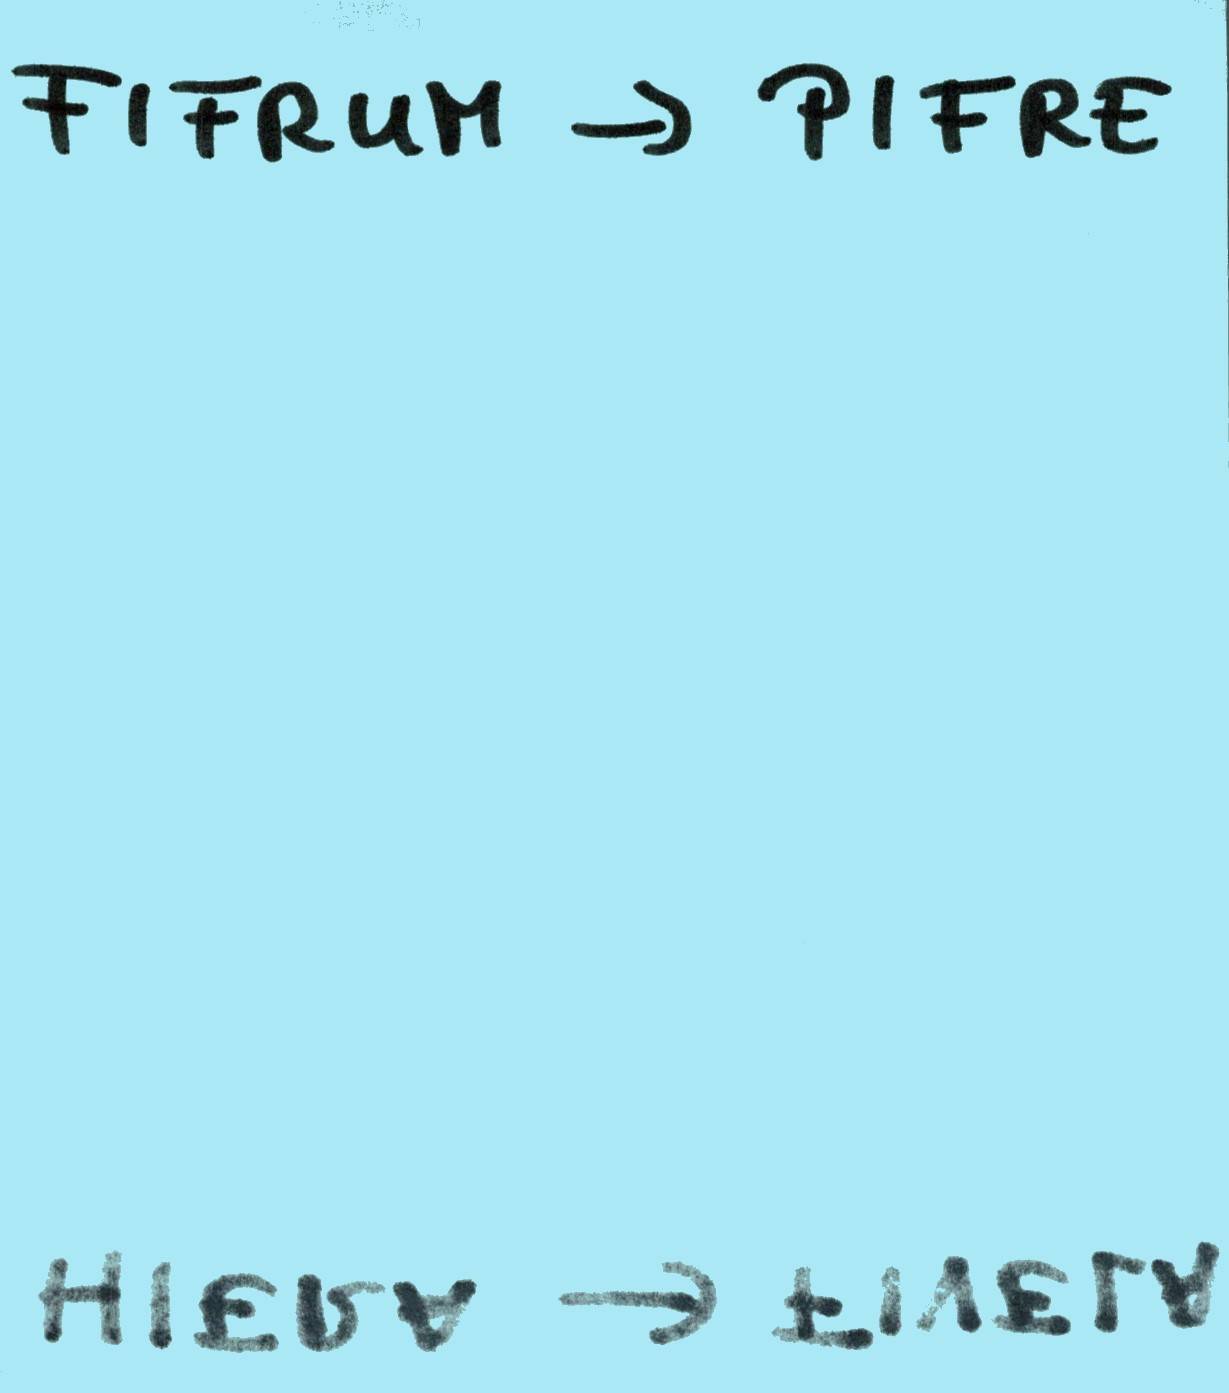 FIFRUM → PIFRE
HIERA → FIVELA